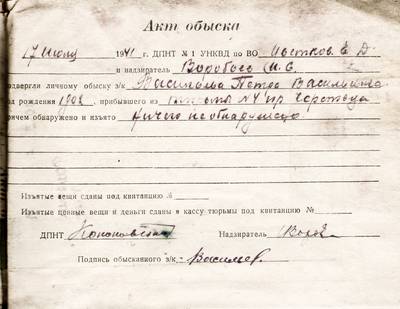 Акт обыска
17 Июля 1941 г. ДПНТ № 1 УНКВД по ВО Е. Д.
и надзиратель Воробьев И. С.
одвергли личному обыску з/к Васильева Петра Васильевича
год рождения 1902, прибывшего из № 4 гор Череповца
ричем обнаружено и изъято ничего не обнаружено
Изъятые вещи сданы под квитанцию №
Изъятые ценные вещи и деньги сданы в кассу тюрьмы под квитанцию №
ДПНТ Надзиратель
Подпись обысканного з/к Васильев.